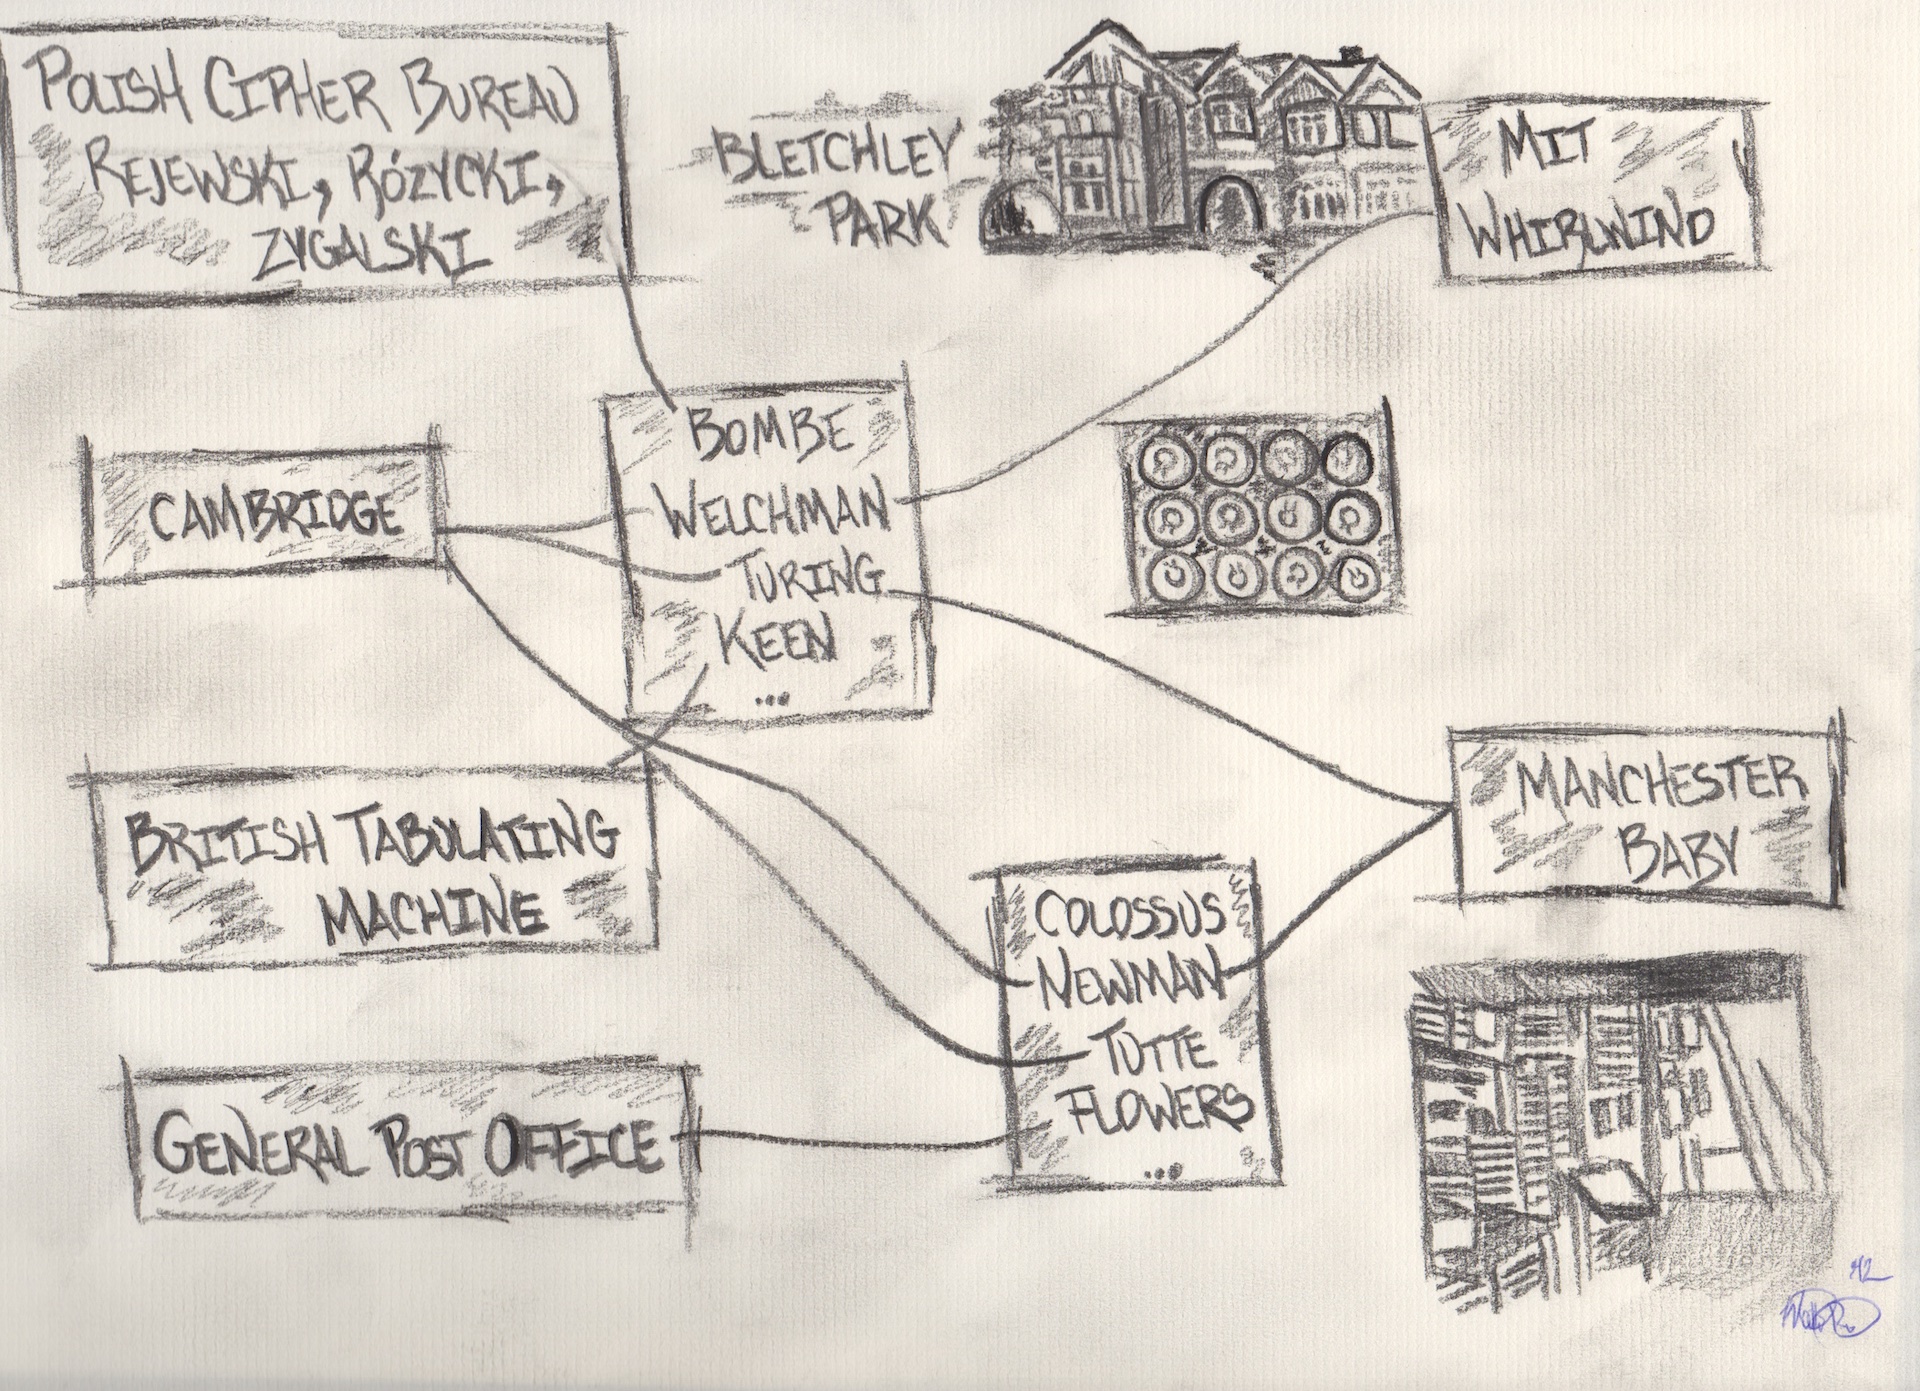 POLISH CIPHER BUREAU
REJEWSKI, RÓZYCKI,
ZYGALSKI
BLETCHLEY
PARK
MIT
WHIRLWIND
CAMBRIDGE
BOMBE
WELCHMAN
TURING
KEEN
...
BRITISH TABULATING
MACHINE
MANCHESTER
BABY
COLOSSUS
NEWMAN
TUTTE
FLOWERS
...
GENERAL POST OFFICE